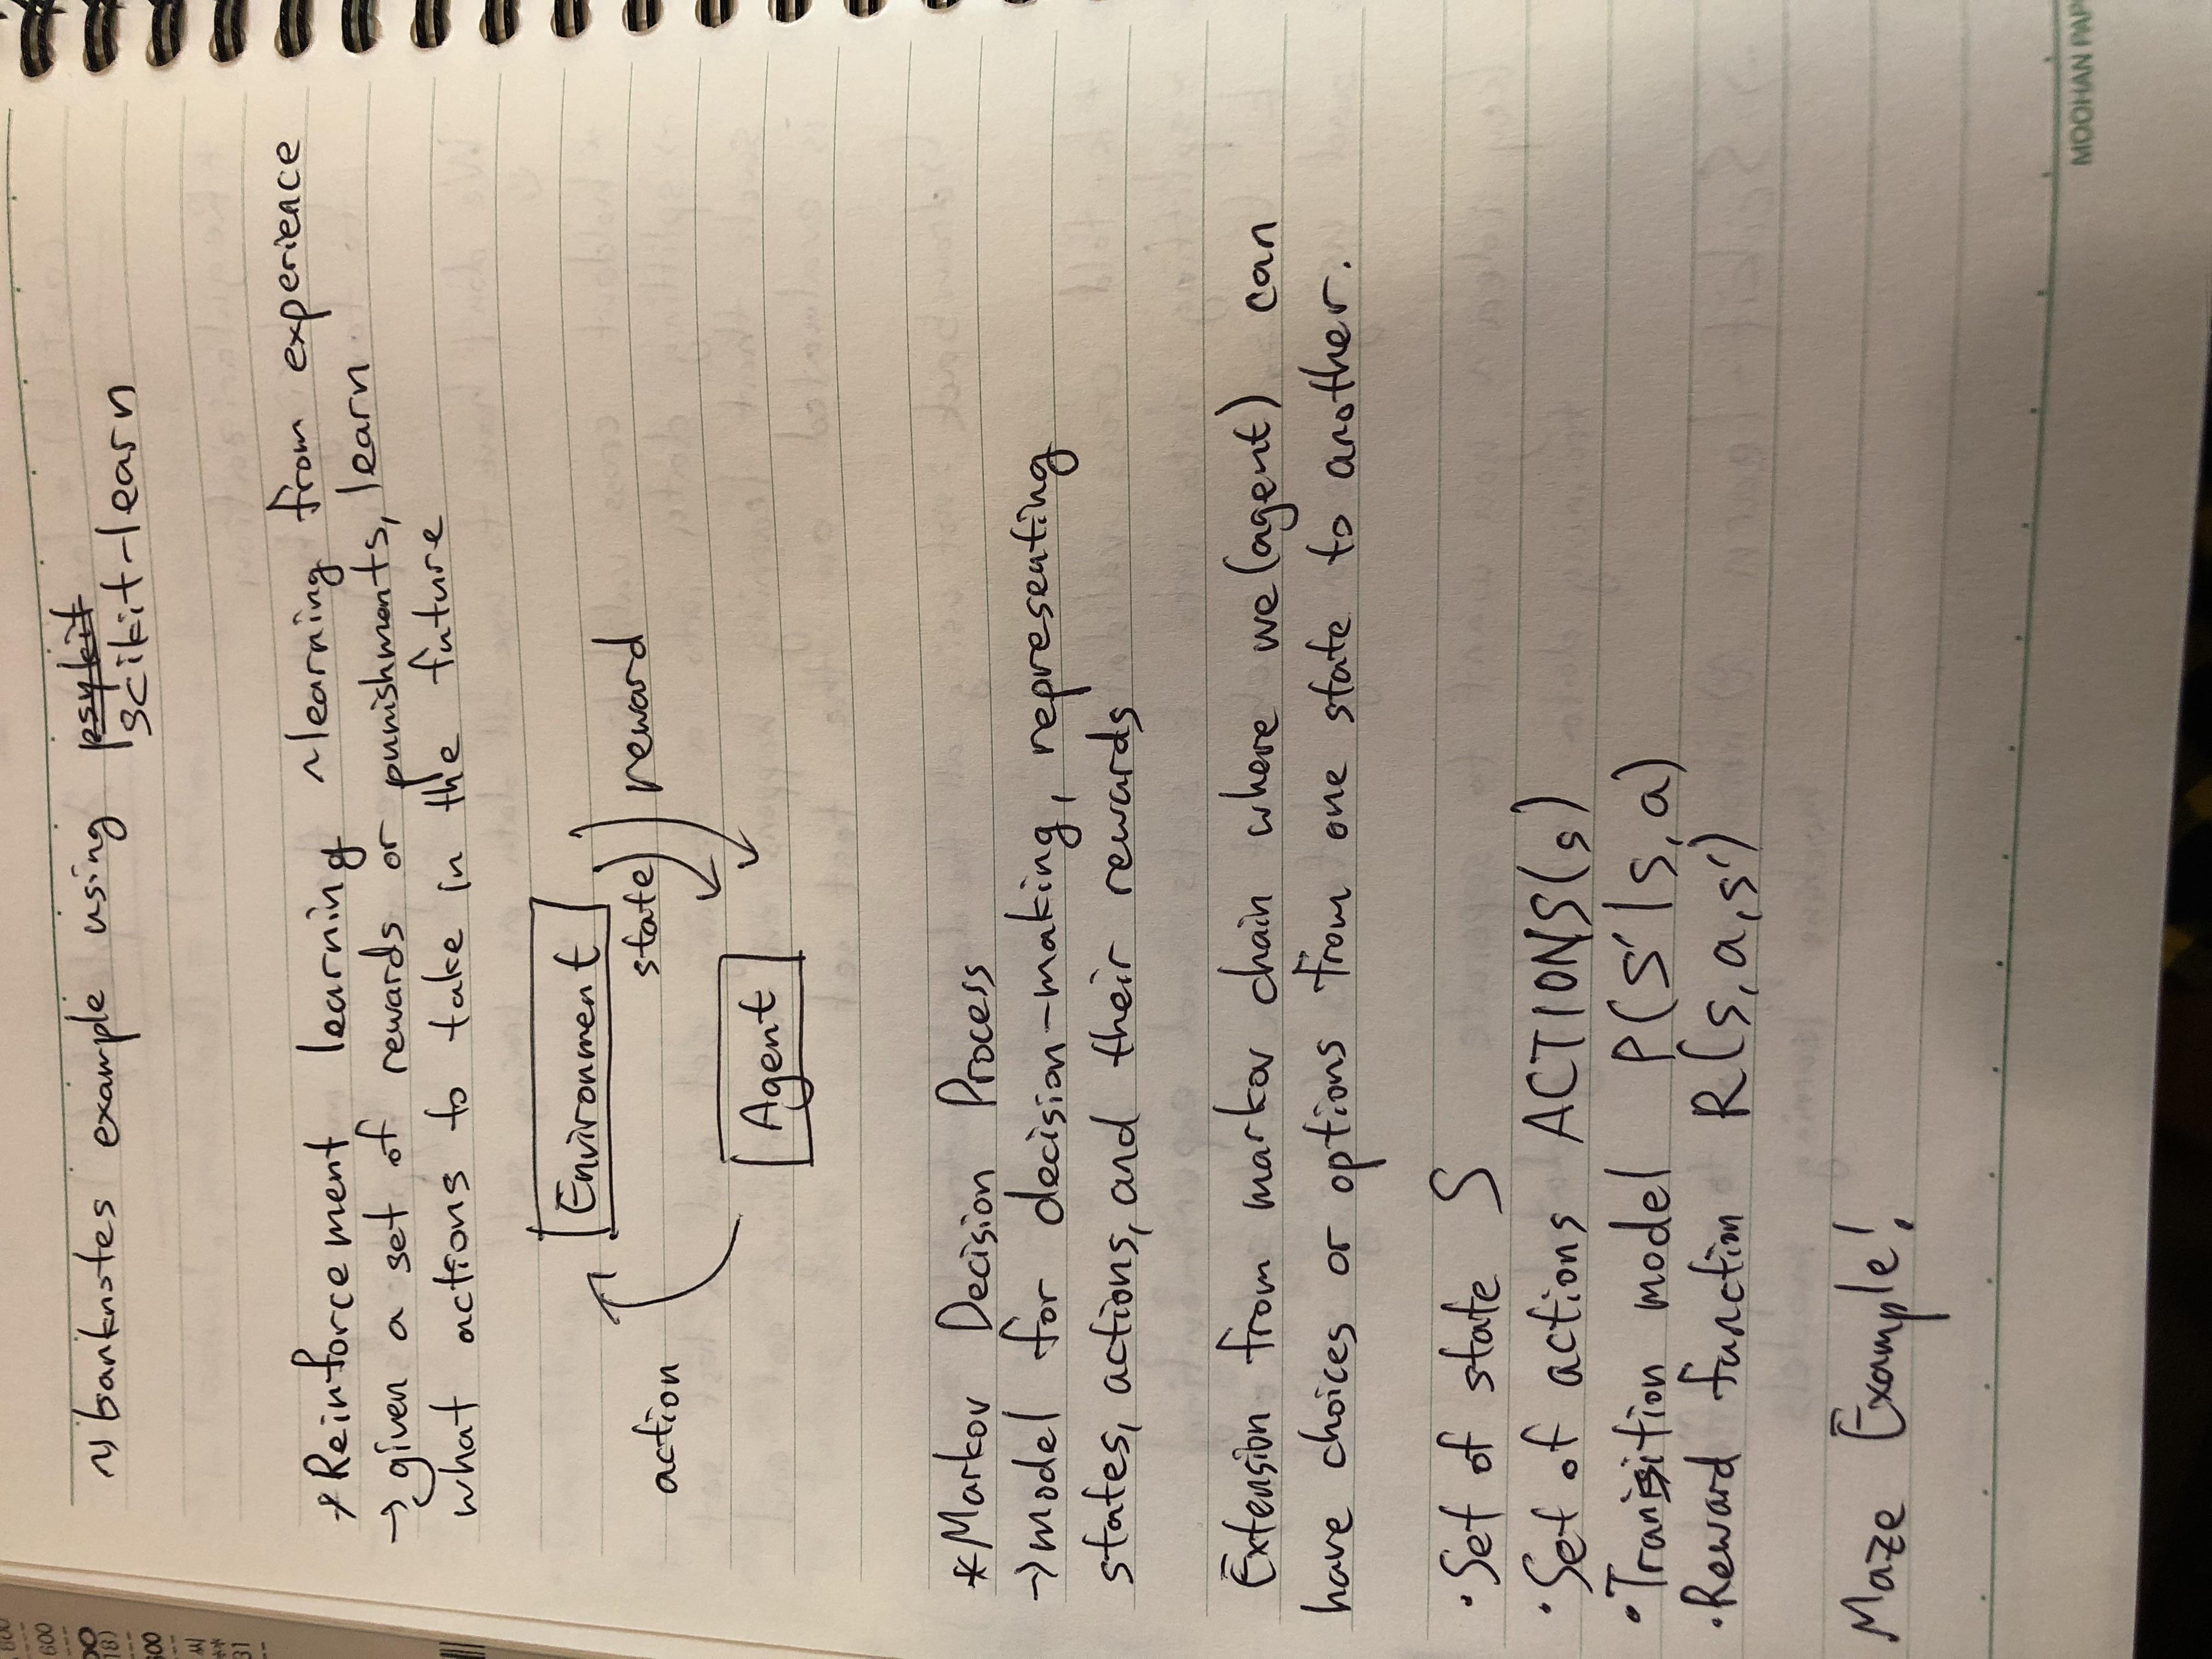 600
600
18)
600
**
31
~> banknotes example using psykit
scikit-learn
* Reinforcement learning ~learning from experience
→ given a set of rewards or punishments, learn
what actions to take in the future
Environment
action
state
reward
Agent
*Markov Decision Process
→model for decision-making, representing
states, actions, and their rewards
Extension from markov chain where we (agent) can
have choices or options from one state to another.
·Set of state S
·Set of actions ACTIONS(s)
·Transition model P(s'|s,a)
·Reward function R(s,a,s')
Maze Example!
MOOHAN PAP